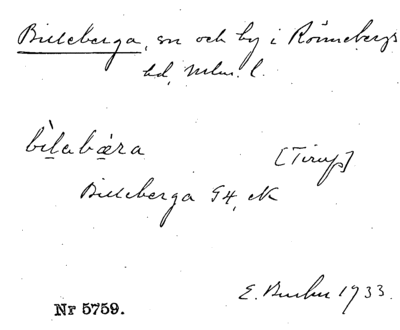 Billeberga, sn och by i Rönnebergs
hd, Mlm. l.
bìlabæra [Tirup]
Billeberga G4, N
E. 1933.
Nr 5759.